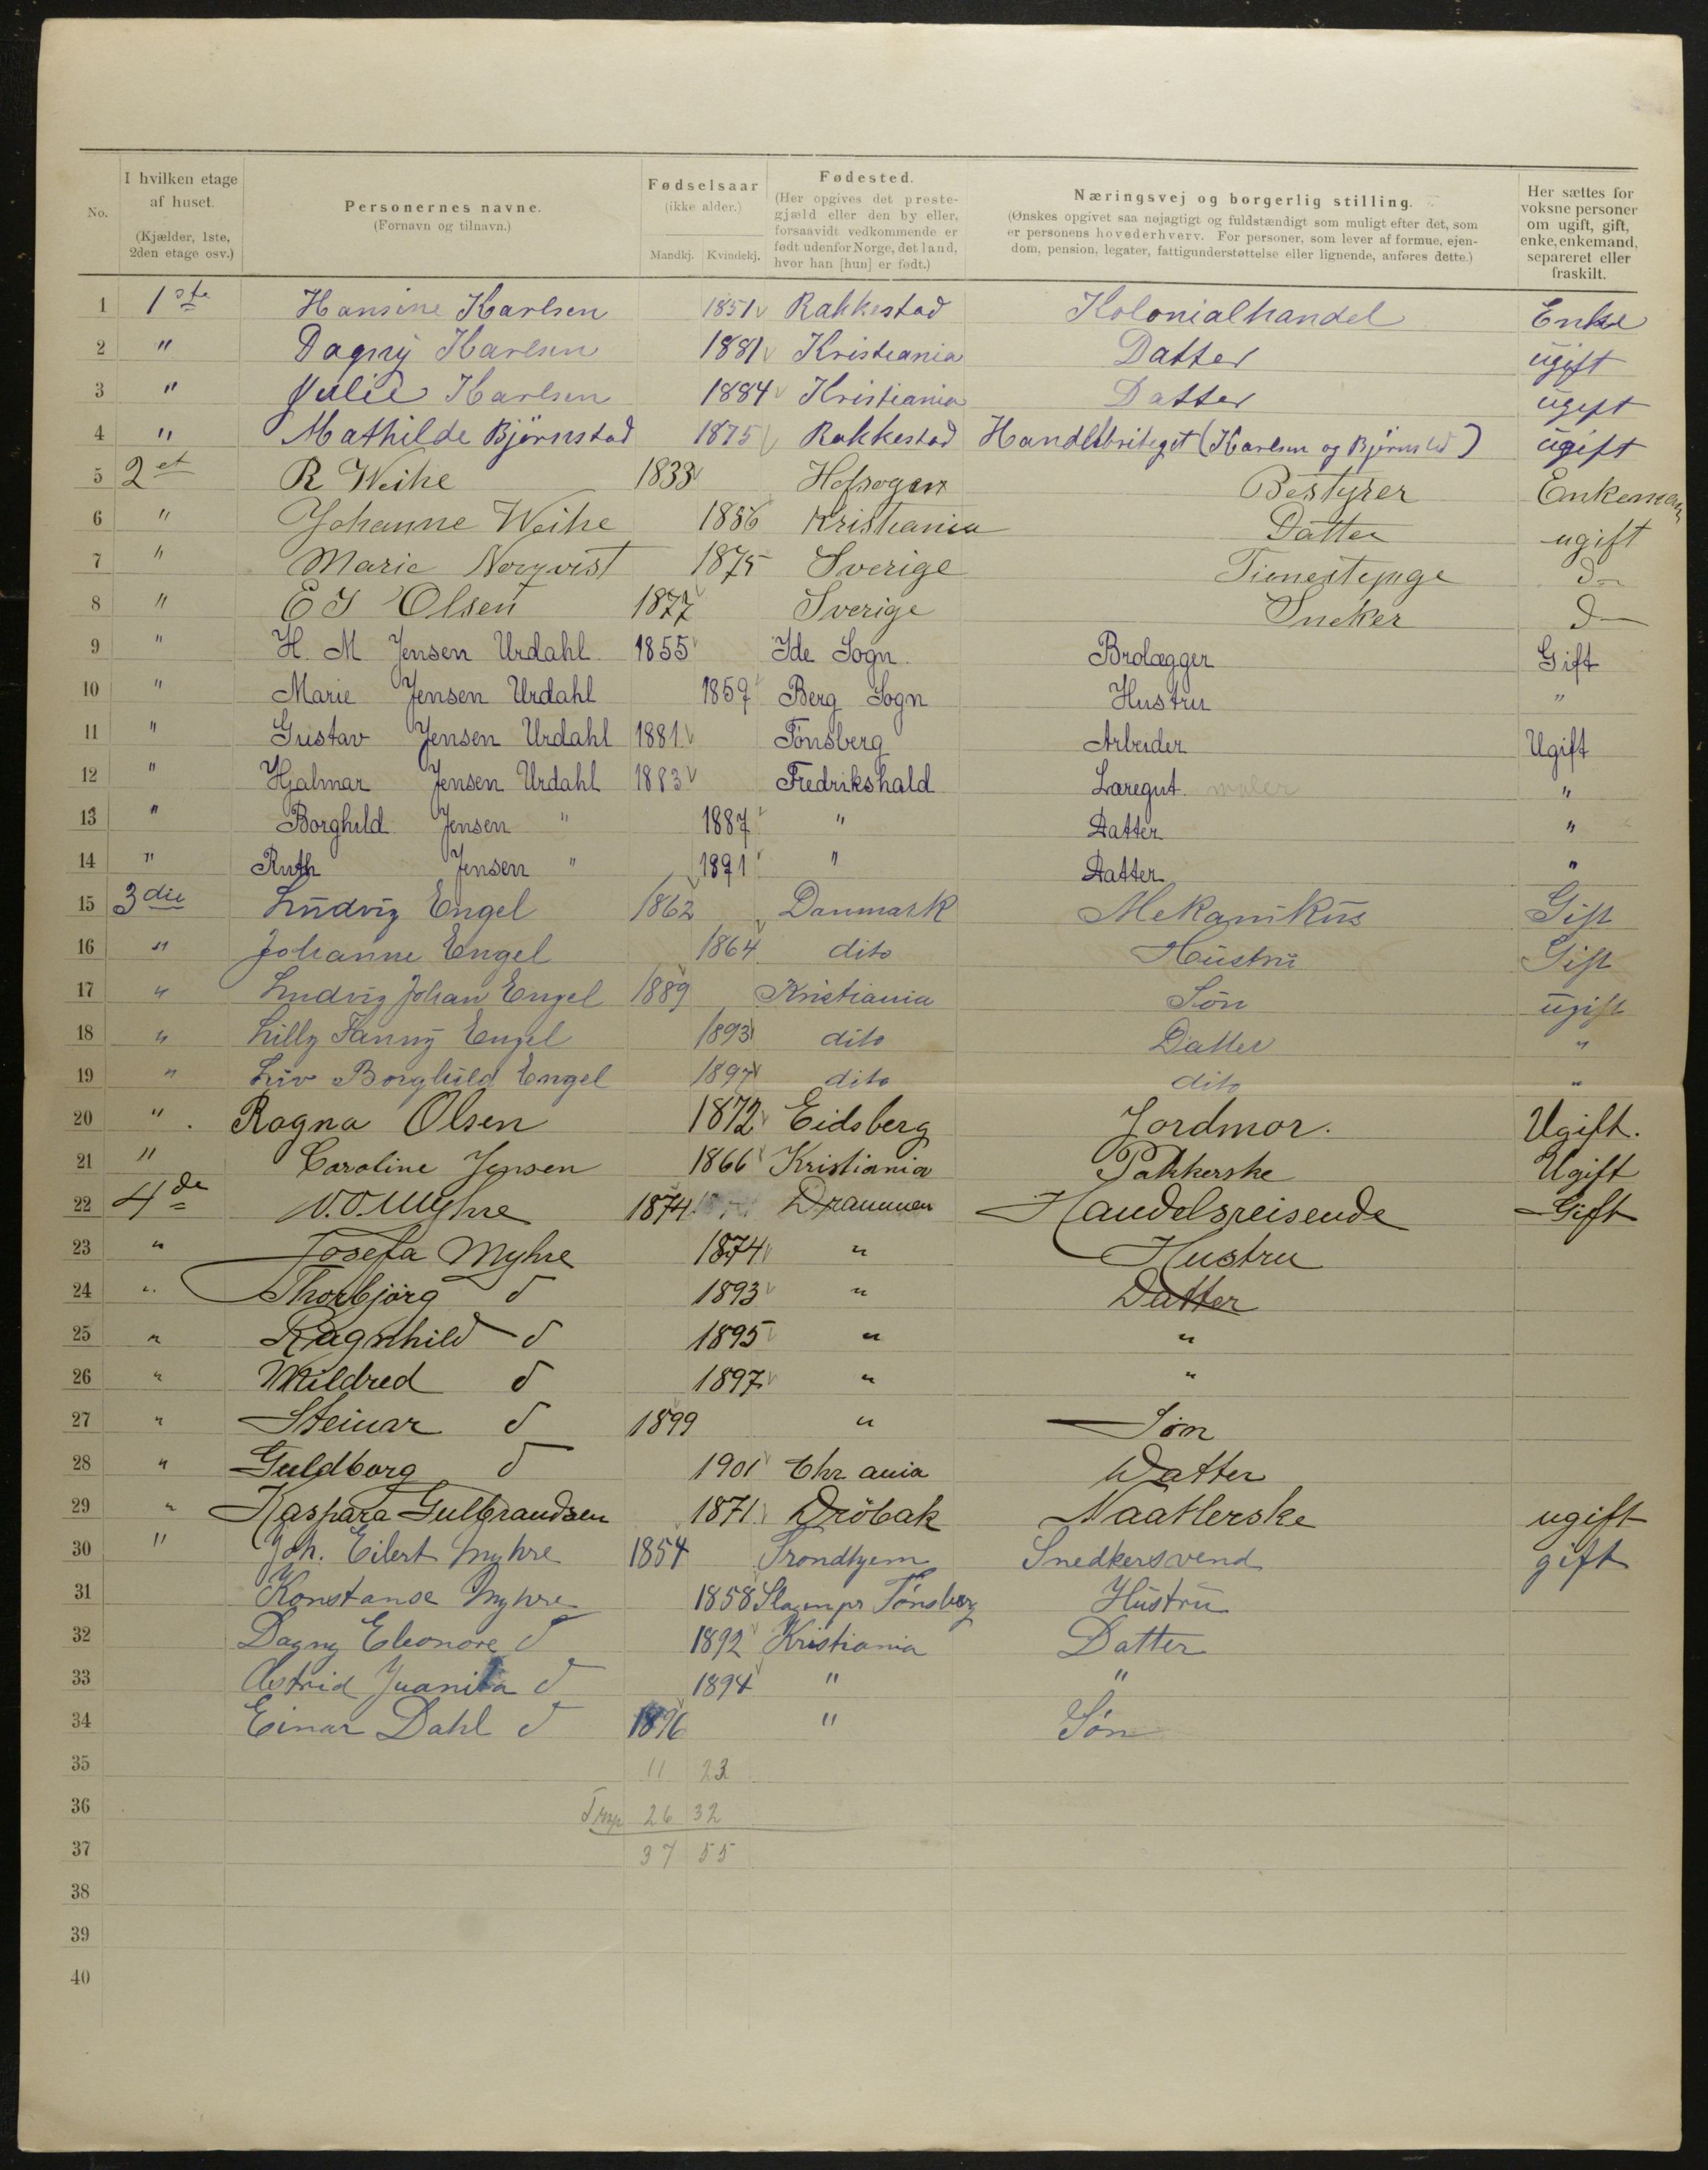 No. | I hvilken etage af huset. (Kjælder, 1ste, 2den etage osv.) | Personernes navne. (Fornavn og tilnavn.) | Fødselsaar (ikke alder.) Mandkj. Kvindekj. | Fødested. (Her opgives det prestegjæld eller den by eller, forsaavidt vedkommende er født udenfor Norge, det land, hvor han [hun] er født.) | Næringsvej og borgerlig stilling. (Ønskes opgivet saa nøjagtigt og fuldstændigt som muligt efter det, som er personens hovederhverv. For personer, som lever af formue, ejendom, pension, legater, fattigunderstøttelse eller lignende, anføres dette.) | Her sættes for voksne personer om ugift, gift, enke, enkemand, separeret eller fraskilt.
1 1ste Hansine Karlsen 1851 Rakkestad Kolonialhandel Enke
2 " Dagny Karlsen 1881 Kristiania Datter ugift
3 " Julie Karlsen 1884 Kristiania Datter ugift
4 " Mathilde Bjørnstad 1875 Rakkestad (Karlsen og Bjørnstad) ugift
5 2et R Weihe 1833 Bestyrer Enkeman
6 " Johanne Weihe 1886 Kristiania Datter ugift
7 " Marie 1875 Sverige do
8 " E J Olsen 1877 Sverige Sneker do
9 " H. M Jensen Urdahl 1855 Ide Sogn. Brolægger Gift
10 " Marie Jensen Urdahl 1859 Berg Sogn Hustru "
11 " Gustav Jensen Urdahl 1881 Tønsberg Arbeider Ugift
12 " Hjalmar Jensen Urdahl 1883 Fredrikshald Læregut. maler "
13 " Borghild Jensen " 1887 " Datter "
14 " Ruth Jensen " 1891 " Datter "
15 3die Ludvig Engel 1862 Danmark Mekanikus Gift
16 " Johanne Engel 1864 dito Hustru Gift
17 " Ludvig Johan Engel 1889 Kristiania Søn ugift
18 " Lilly Fanny Engel 1893 dito Datter "
19 " Liv Borghild Engel 1897 dito dito "
20 " Ragna Olsen 1872 Eidsberg Jordmor. Ugift.
21 " Caroline Jensen 1866 Kristiania Pakkerske Ugift
22 4de N.O. Myhre 1874 Drammen Handelsreisende Gift
23 " Josefa Myhre 1874 " Hustru
24 " Thorbjørg d 1893 " Datter
25 " Ragnhild d 1895 " "
26 " Mildred d 1897 " "
27 " Steinar d 1899 " Søn
28 " Guldborg d 1901 Chr ania Datter
29 " Kaspara Gulbrandsen 1871 Drøbak Naatlerske ugift
30 " Joh. Eilert Myhre 1854 Trondhjem Snedkersvend gift
31 Konstanse Myhre 1858 Slagen pr Tønsberg Hustru
32 Dagny Eleonore d 1892 Kristiania Datter
33 Astrid Juanita d 1894 " "
34 Einar Dahl d 1896 " Søn
35 11 23
36 26 32
37 37 55
38
39
40